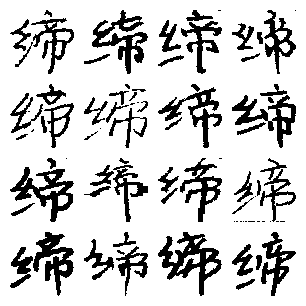 缔缔缔缔
缔缔缔缔
缔缔缔缔
缔缔缔缔